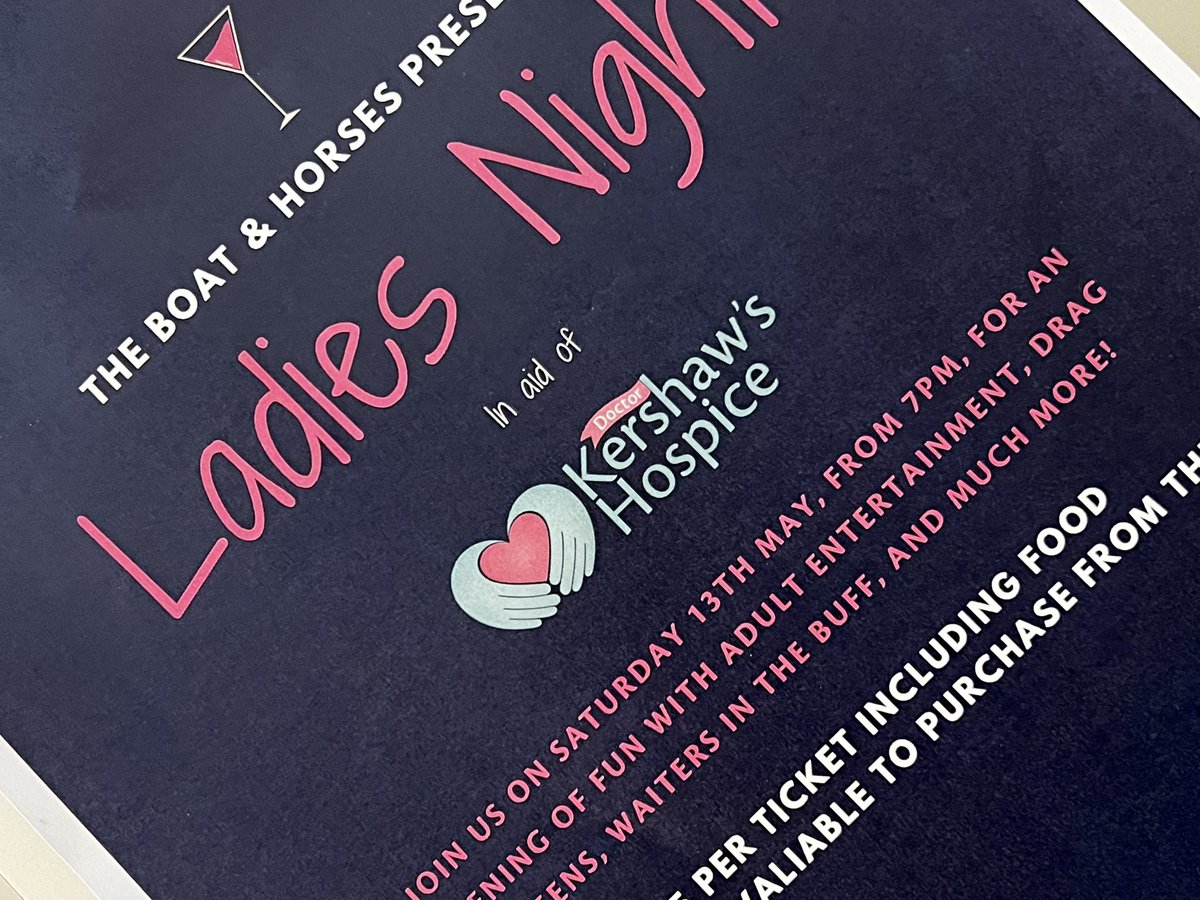 THE BOAT & HORSES PRESE
Ladies Night
In aid of
Doctor
Kershaw's
Hospice
JOIN US ON SATURDAY 13TH MAY, FROM 7PM, FOR AN
ENING OF FUN WITH ADULT ENTERTAINMENT, DRAG
EENS, WAITERS IN THE BUFF, AND MUCH MORE!
PER TICKET INCLUDING FOOD
VALIABLE TO PURCHASE FROM TH